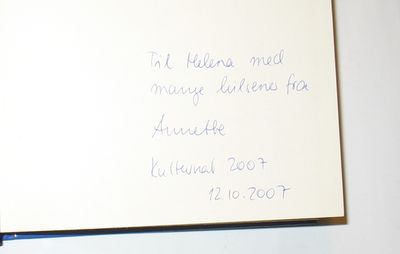 Til Helena med
mange hilsener fra
Annette
Kulturnat 2007
12.10.2007